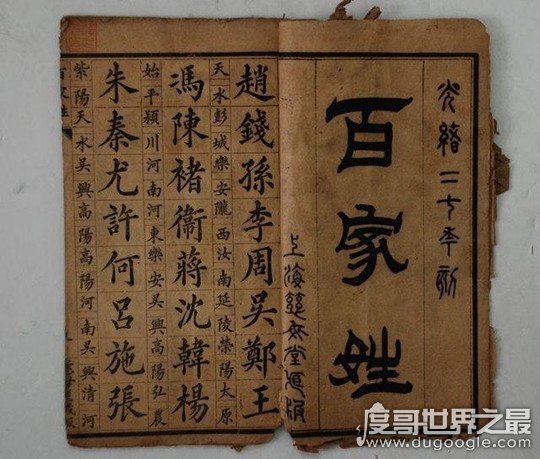 光緒二七年刻
百家姓
上海慈母堂版
趙錢孫李周吳鄭王
天水彭城樂安隴西汝南延陵滎陽太原
馮陳褚衛蔣沈韓楊
始平潁川河南河東樂安吳興高陽弘農
朱秦尤許何呂施張
紫陽天水吳興高陽高陽河南吳興清河
百家姓
度哥世界之最
www.dugoogle.com